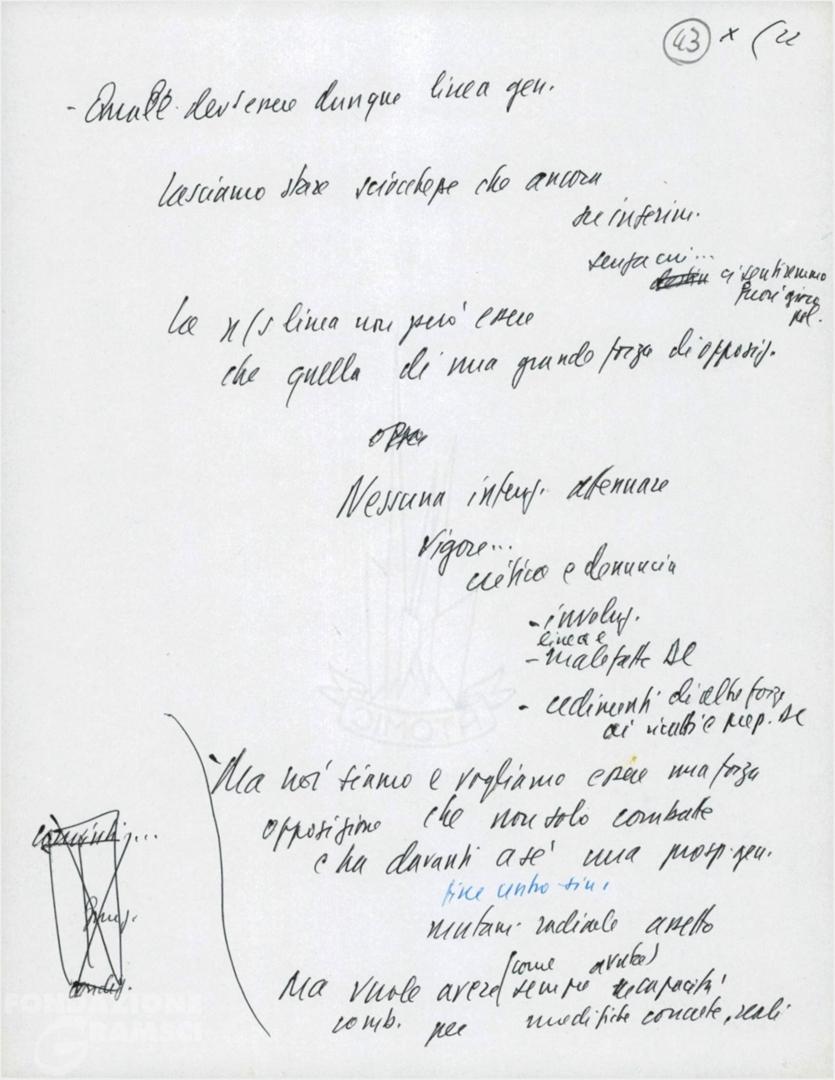 43 x (22
- Qual è dev'essere dunque linea gen.
Lasciamo stare sciocchezze che ancora
su inserim.
senza cui...
ci sentiremmo
fuori gioco
pol.
La n/s linea non può essere
che quella di una grande forza di opposiz.
Nessuna intenz. attenuare
vigore...
critica e denuncia
- involuz.
linea e
- malefatte DC
- cedimenti di altre forze
ai ricatti e prep. DC
Ma noi siamo e vogliamo essere una forza
opposizione che non solo combatte
e ha davanti a sé una prosp. gen.
fine centro-sin.
mutam. radicale assetto
Ma vuole avere (come avuto)
sempre capacità
comb. per modifiche concrete, reali
FONDAZIONE
GRAMSCI
ATOMIC